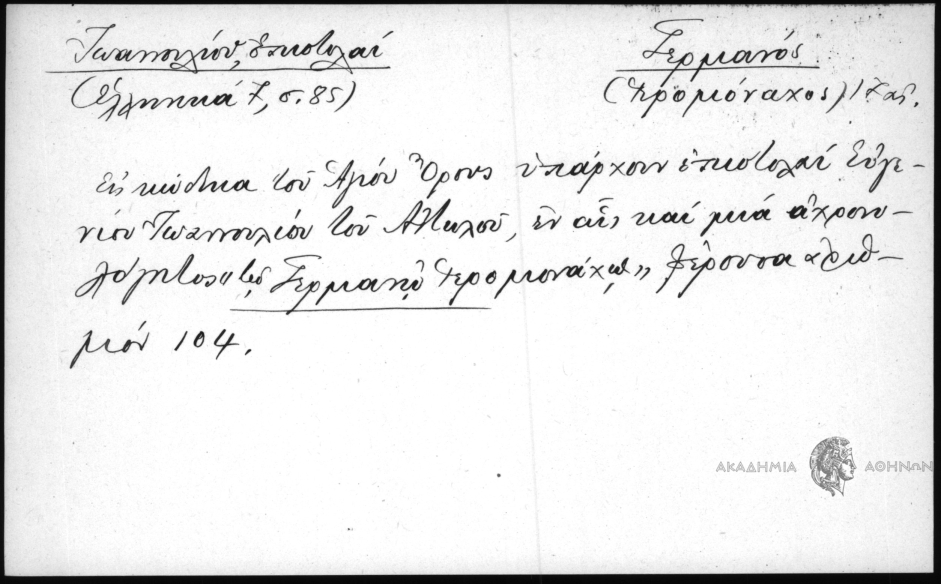 Ἰωαννουλίου, ἐπιστολαί
(Ἑλληνικά 7, σ. 85)
Γερμανός
(ἱερομόναχος) 17 αἰ.
Εἰς κώδικα τοῦ Ἁγίου Ὄρους ὑπάρχουν ἐπιστολαί Εὐγε-
νίου Ἰωαννουλίου τοῦ Αἰτωλοῦ, ἐν αἷς καί μιά ἀχρονο-
λόγητος "τῷ Γερμανῷ ἱερομονάχῳ" φέρουσα ἀριθ-
μόν 104.
ΑΚΑΔΗΜΙΑ ΑΘΗΝΩΝ